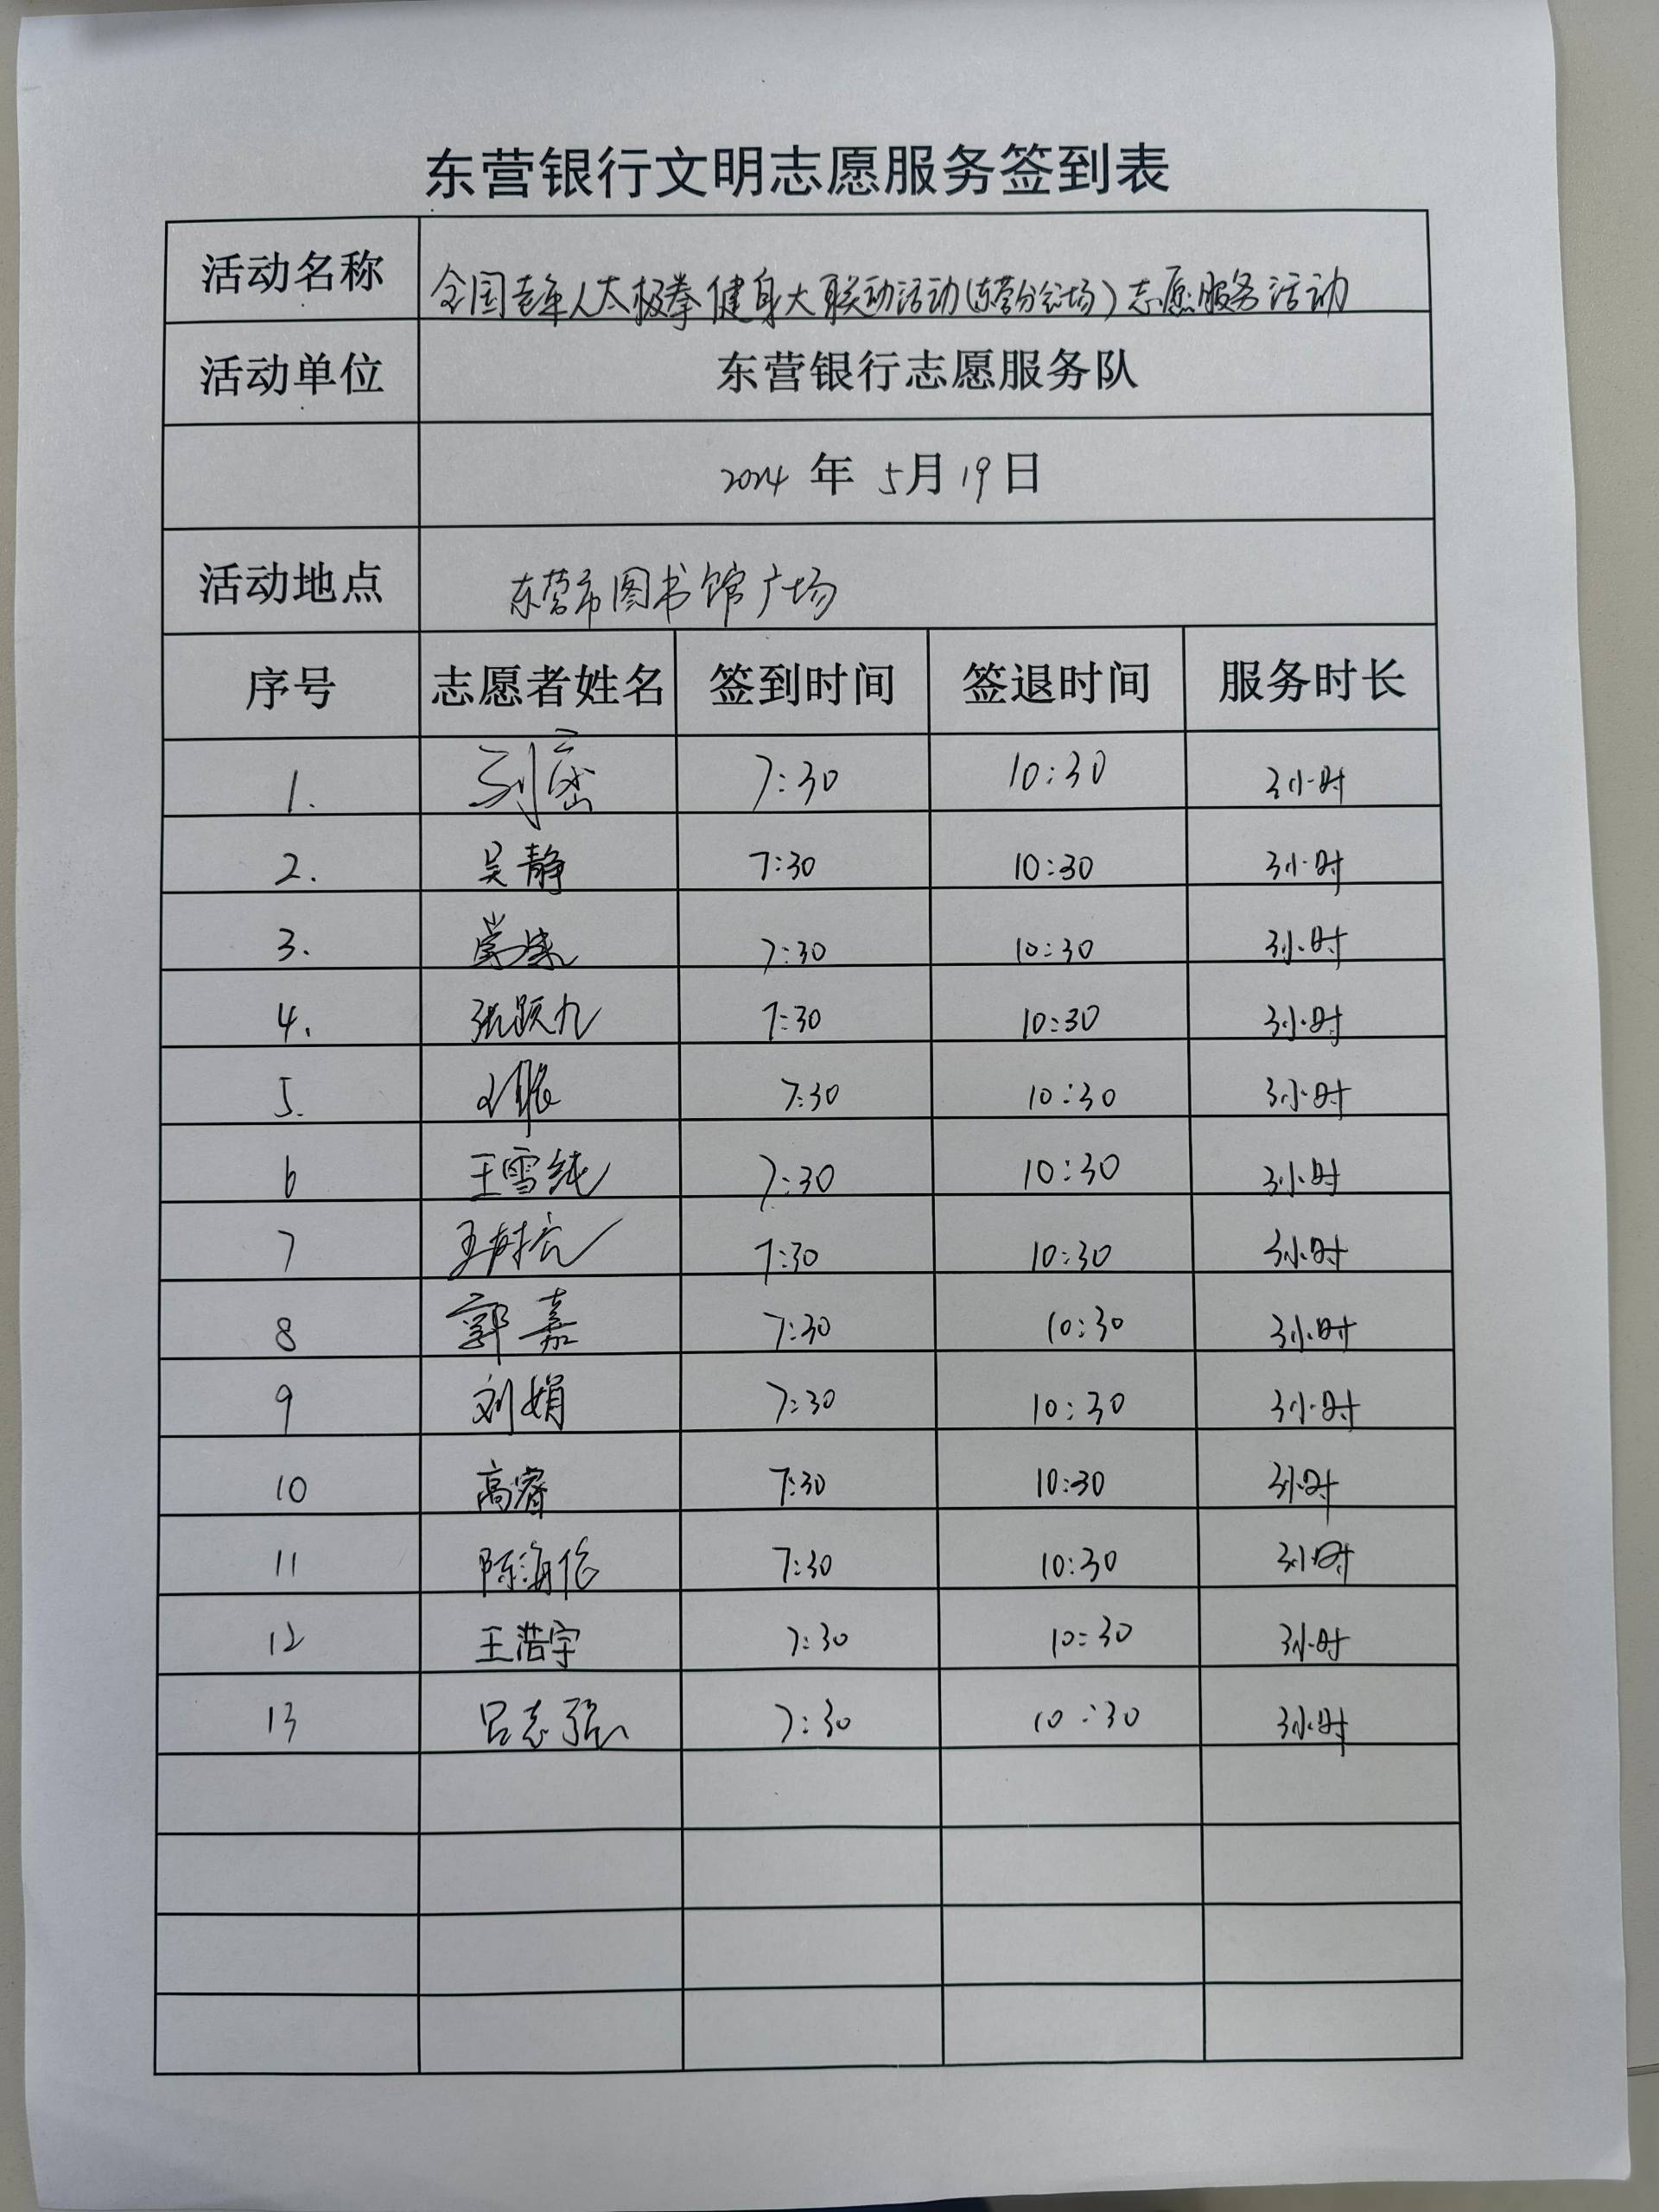 东营银行文明志愿服务签到表
活动名称 全国老年人太极拳健身大联动活动(东营分会场)志愿服务活动
活动单位 东营银行志愿服务队
2024 年 5月 19日
活动地点 东营市图书馆广场
序号 志愿者姓名 签到时间 签退时间 服务时长
1. 刘密 7:30 10:30 3小时
2. 吴静 7:30 10:30 3小时
3. 7:30 10:30 3小时
4. 张跃九 7:30 10:30 3小时
5. 7:30 10:30 3小时
6 王雪纯 7:30 10:30 3小时
7 7:30 10:30 3小时
8 郭嘉 7:30 10:30 3小时
9 刘娟 7:30 10:30 3小时
10 高睿 7:30 10:30 3小时
11 陈海伦 7:30 10:30 3小时
12 王浩宇 7:30 10:30 3小时
13 吕志强 7:30 10:30 3小时